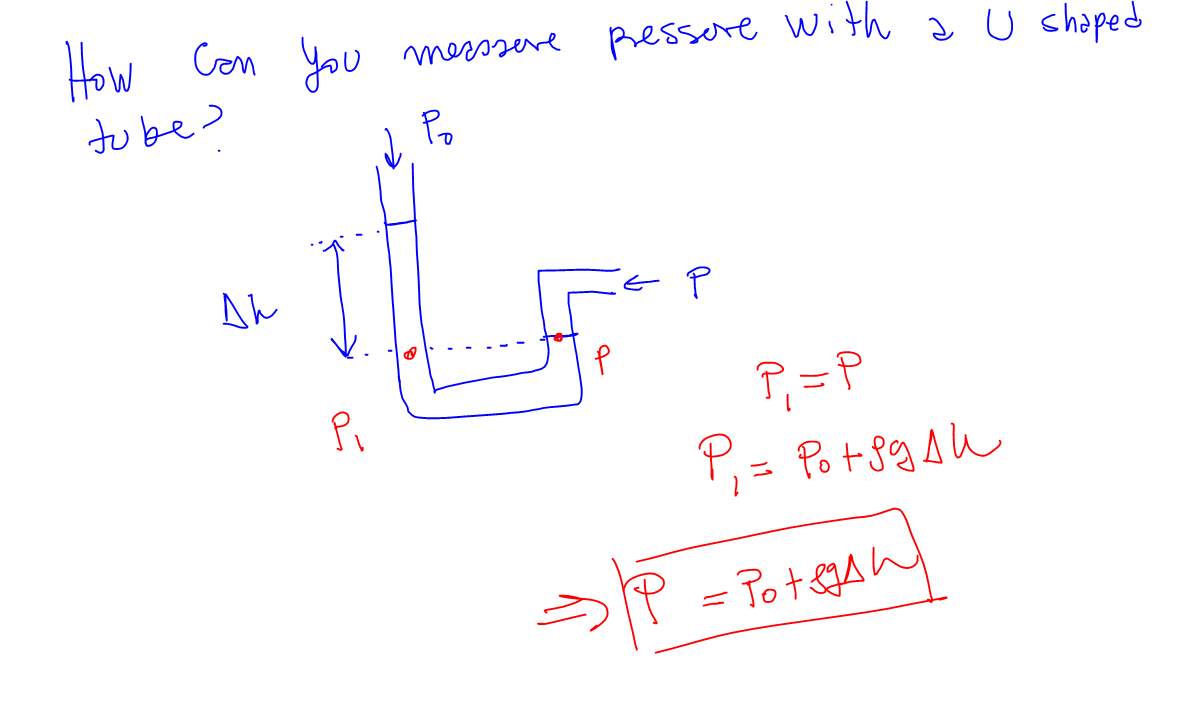 How can you measure pressure with a U shaped
tube?
P₀
Δh
P
P
P₁
P₁ = P
P₁ = P₀ + ρgΔh
⇒ P = P₀ + ρgΔh